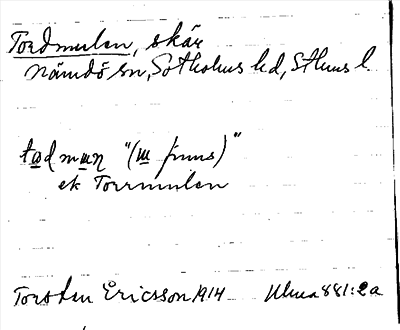 Tordmulen, skär
Nämdö sn, Sotholms hd, Sthms l.
tadmun "(u finns)"
ek Torrmulen
Torsten Ericsson 1914 Ulma 881:2a